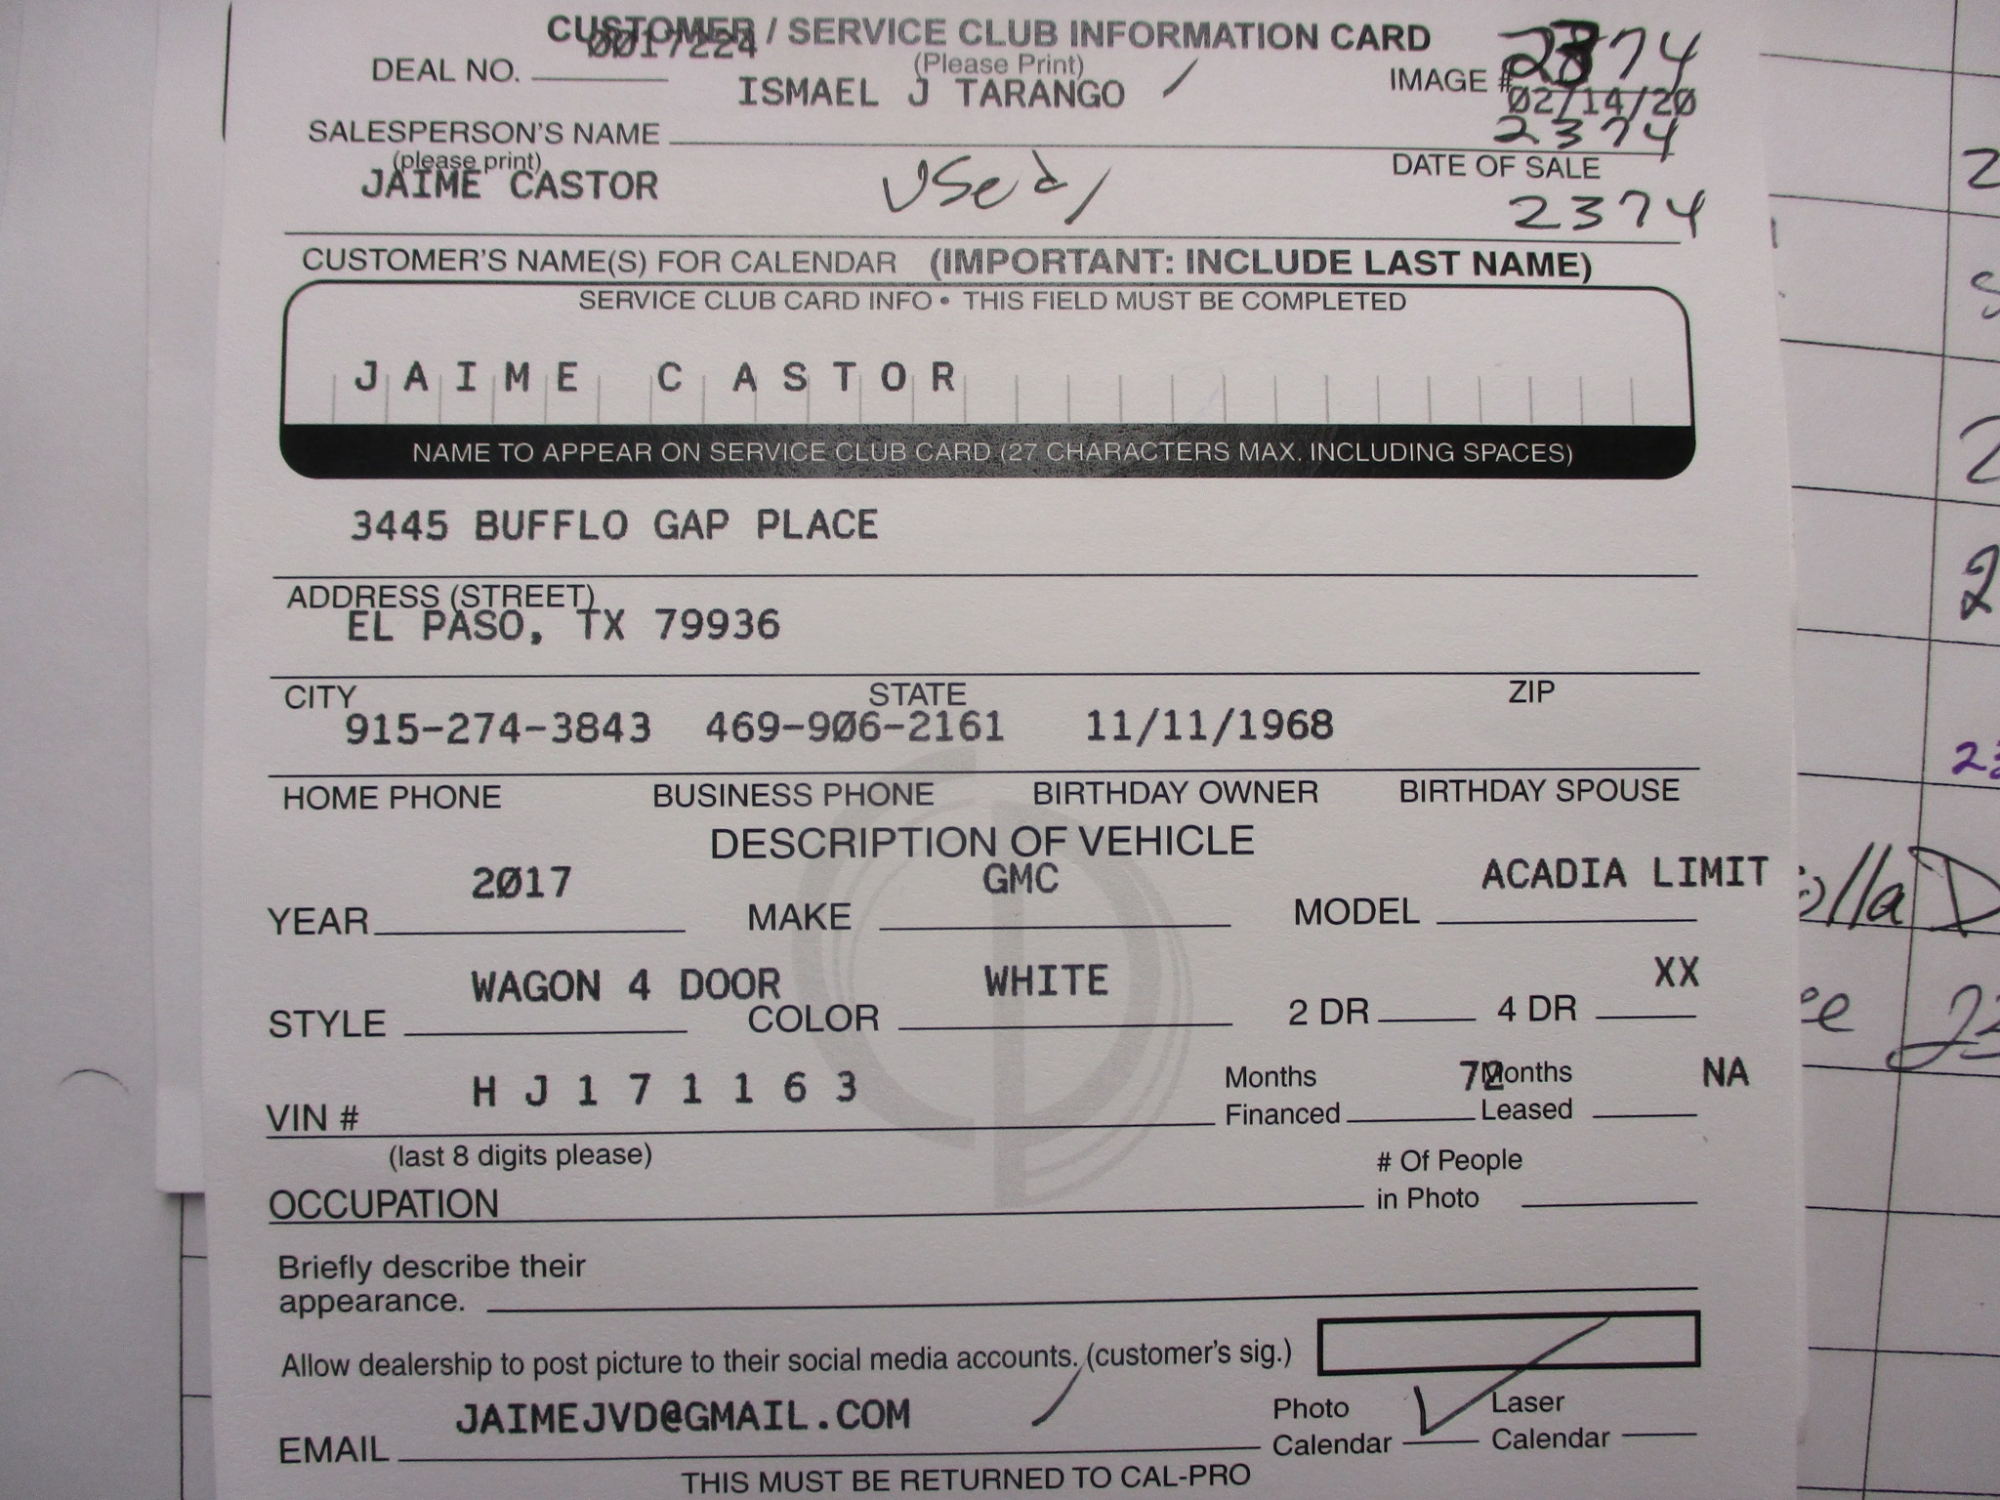 CUSTOMER / SERVICE CLUB INFORMATION CARD
0017224
DEAL NO.
(Please Print)
IMAGE # 2374
ISMAEL J TARANGO
02/14/20
SALESPERSON'S NAME
2374
(please print)
DATE OF SALE
JAIME CASTOR
Used
2374
CUSTOMER'S NAME(S) FOR CALENDAR (IMPORTANT: INCLUDE LAST NAME)
SERVICE CLUB CARD INFO • THIS FIELD MUST BE COMPLETED
JAIME CASTOR
NAME TO APPEAR ON SERVICE CLUB CARD (27 CHARACTERS MAX. INCLUDING SPACES)
3445 BUFFLO GAP PLACE
ADDRESS (STREET)
EL PASO, TX 79936
CITY STATE ZIP
915-274-3843 469-906-2161 11/11/1968
HOME PHONE BUSINESS PHONE BIRTHDAY OWNER BIRTHDAY SPOUSE
DESCRIPTION OF VEHICLE
2017 GMC ACADIA LIMIT
YEAR MAKE MODEL
WAGON 4 DOOR WHITE XX
STYLE COLOR 2 DR 4 DR
HJ171163 Months 72 Months NA
VIN # Financed Leased
(last 8 digits please)
# Of People
OCCUPATION in Photo
Briefly describe their
appearance.
Allow dealership to post picture to their social media accounts. (customer's sig.)
JAIMEJVD@GMAIL.COM
Photo Laser
EMAIL Calendar Calendar
THIS MUST BE RETURNED TO CAL-PRO